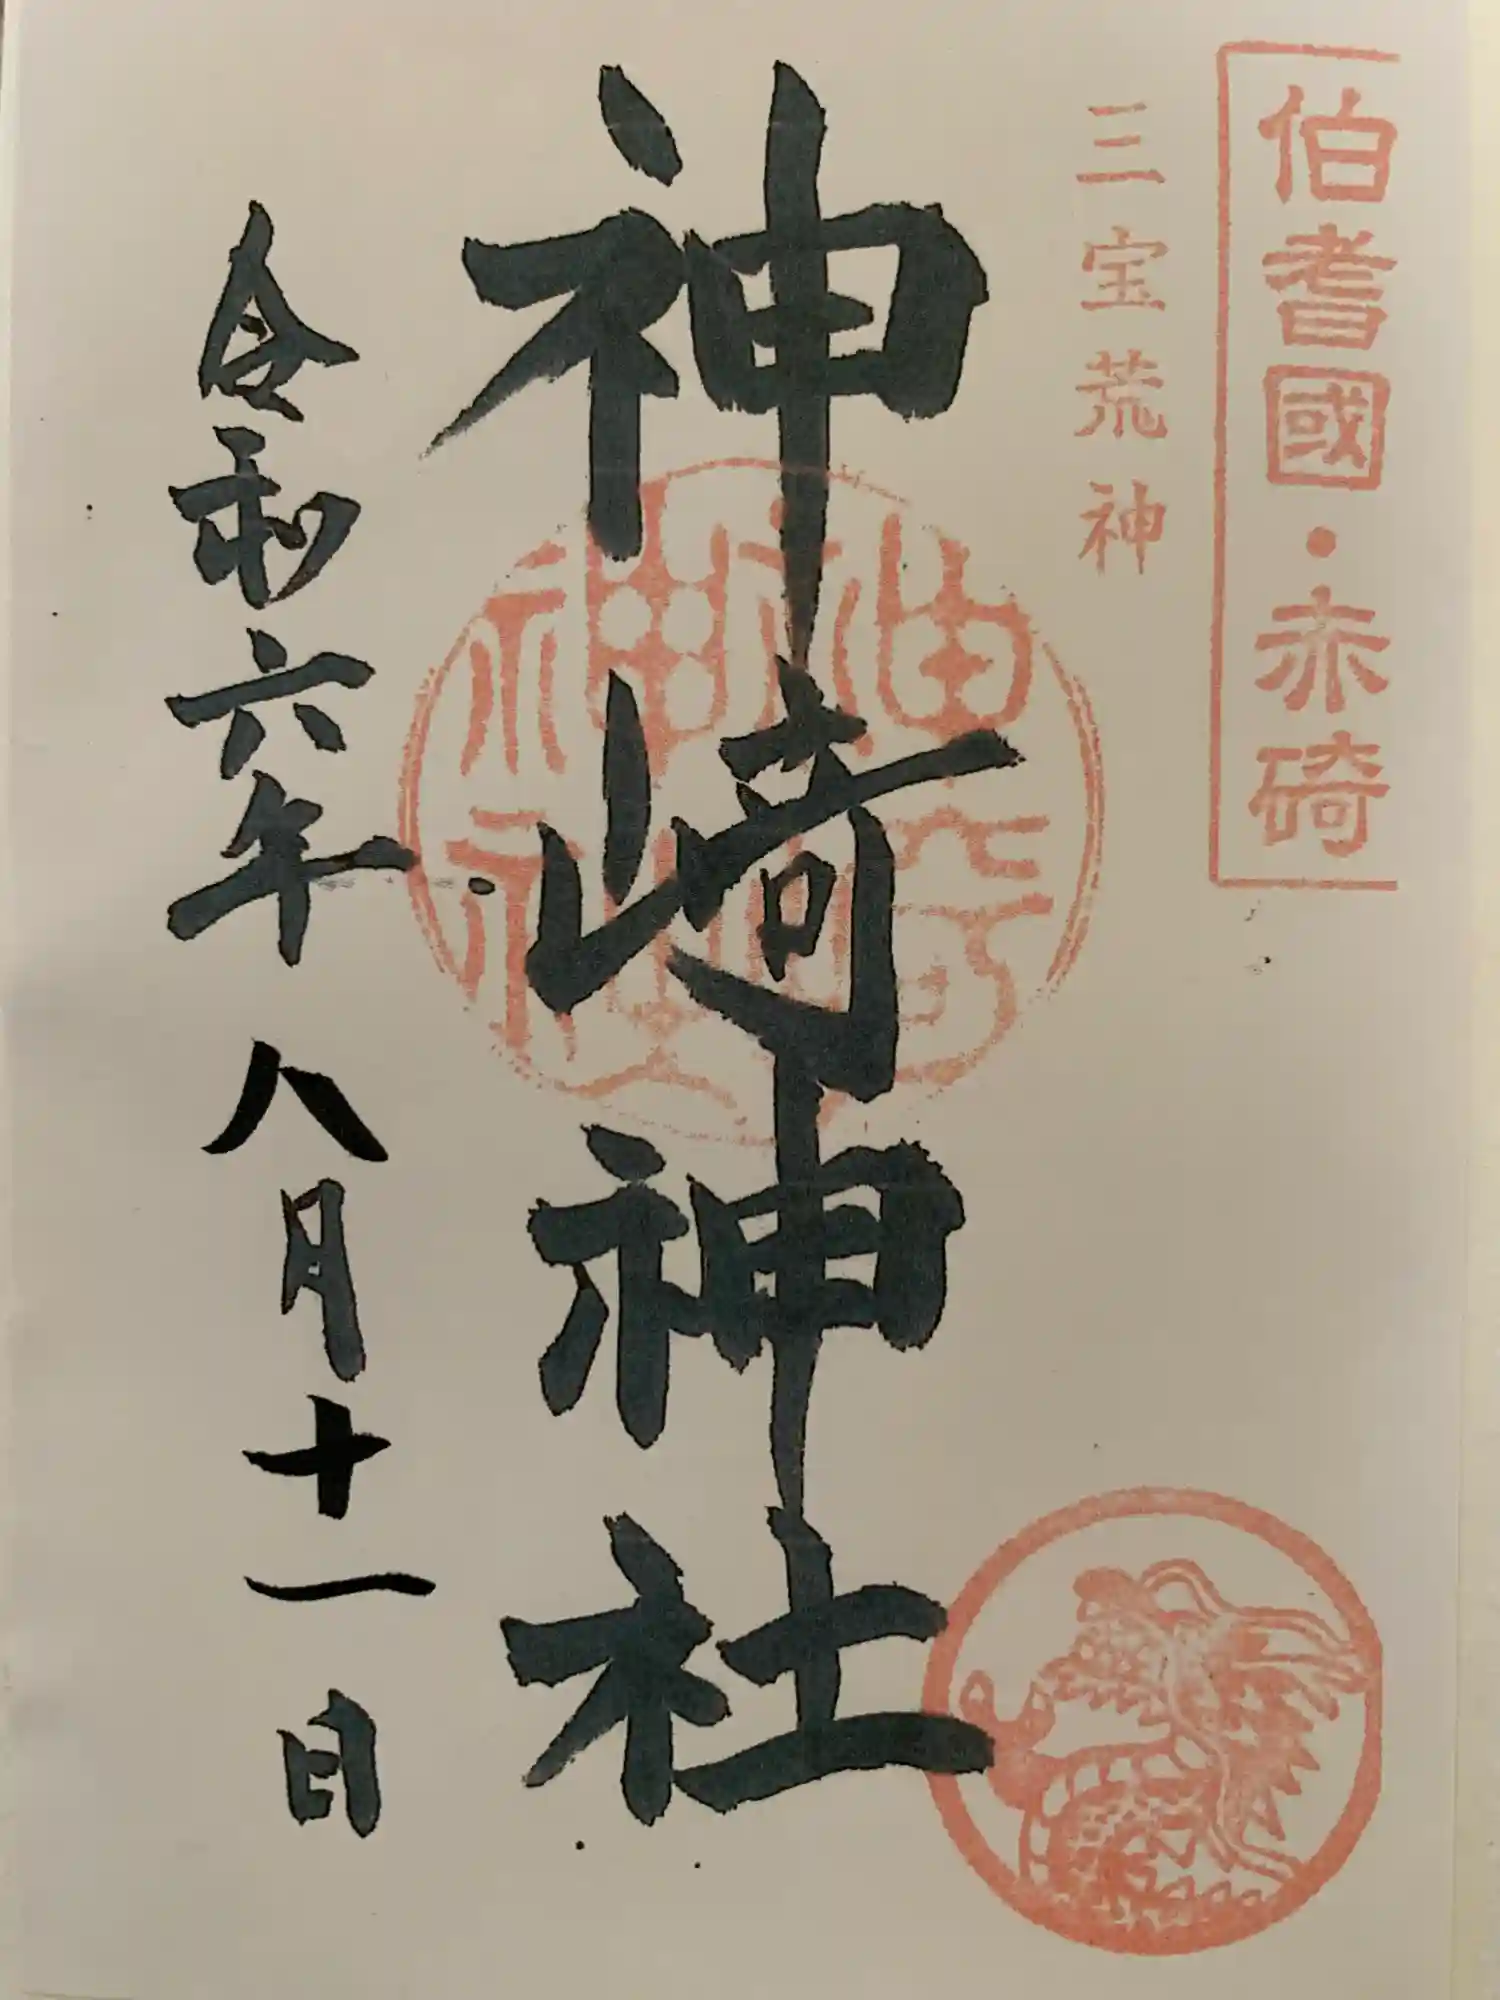 伯耆國・赤碕
三宝荒神
神崎神社
神崎神社
令和六年八月十一日